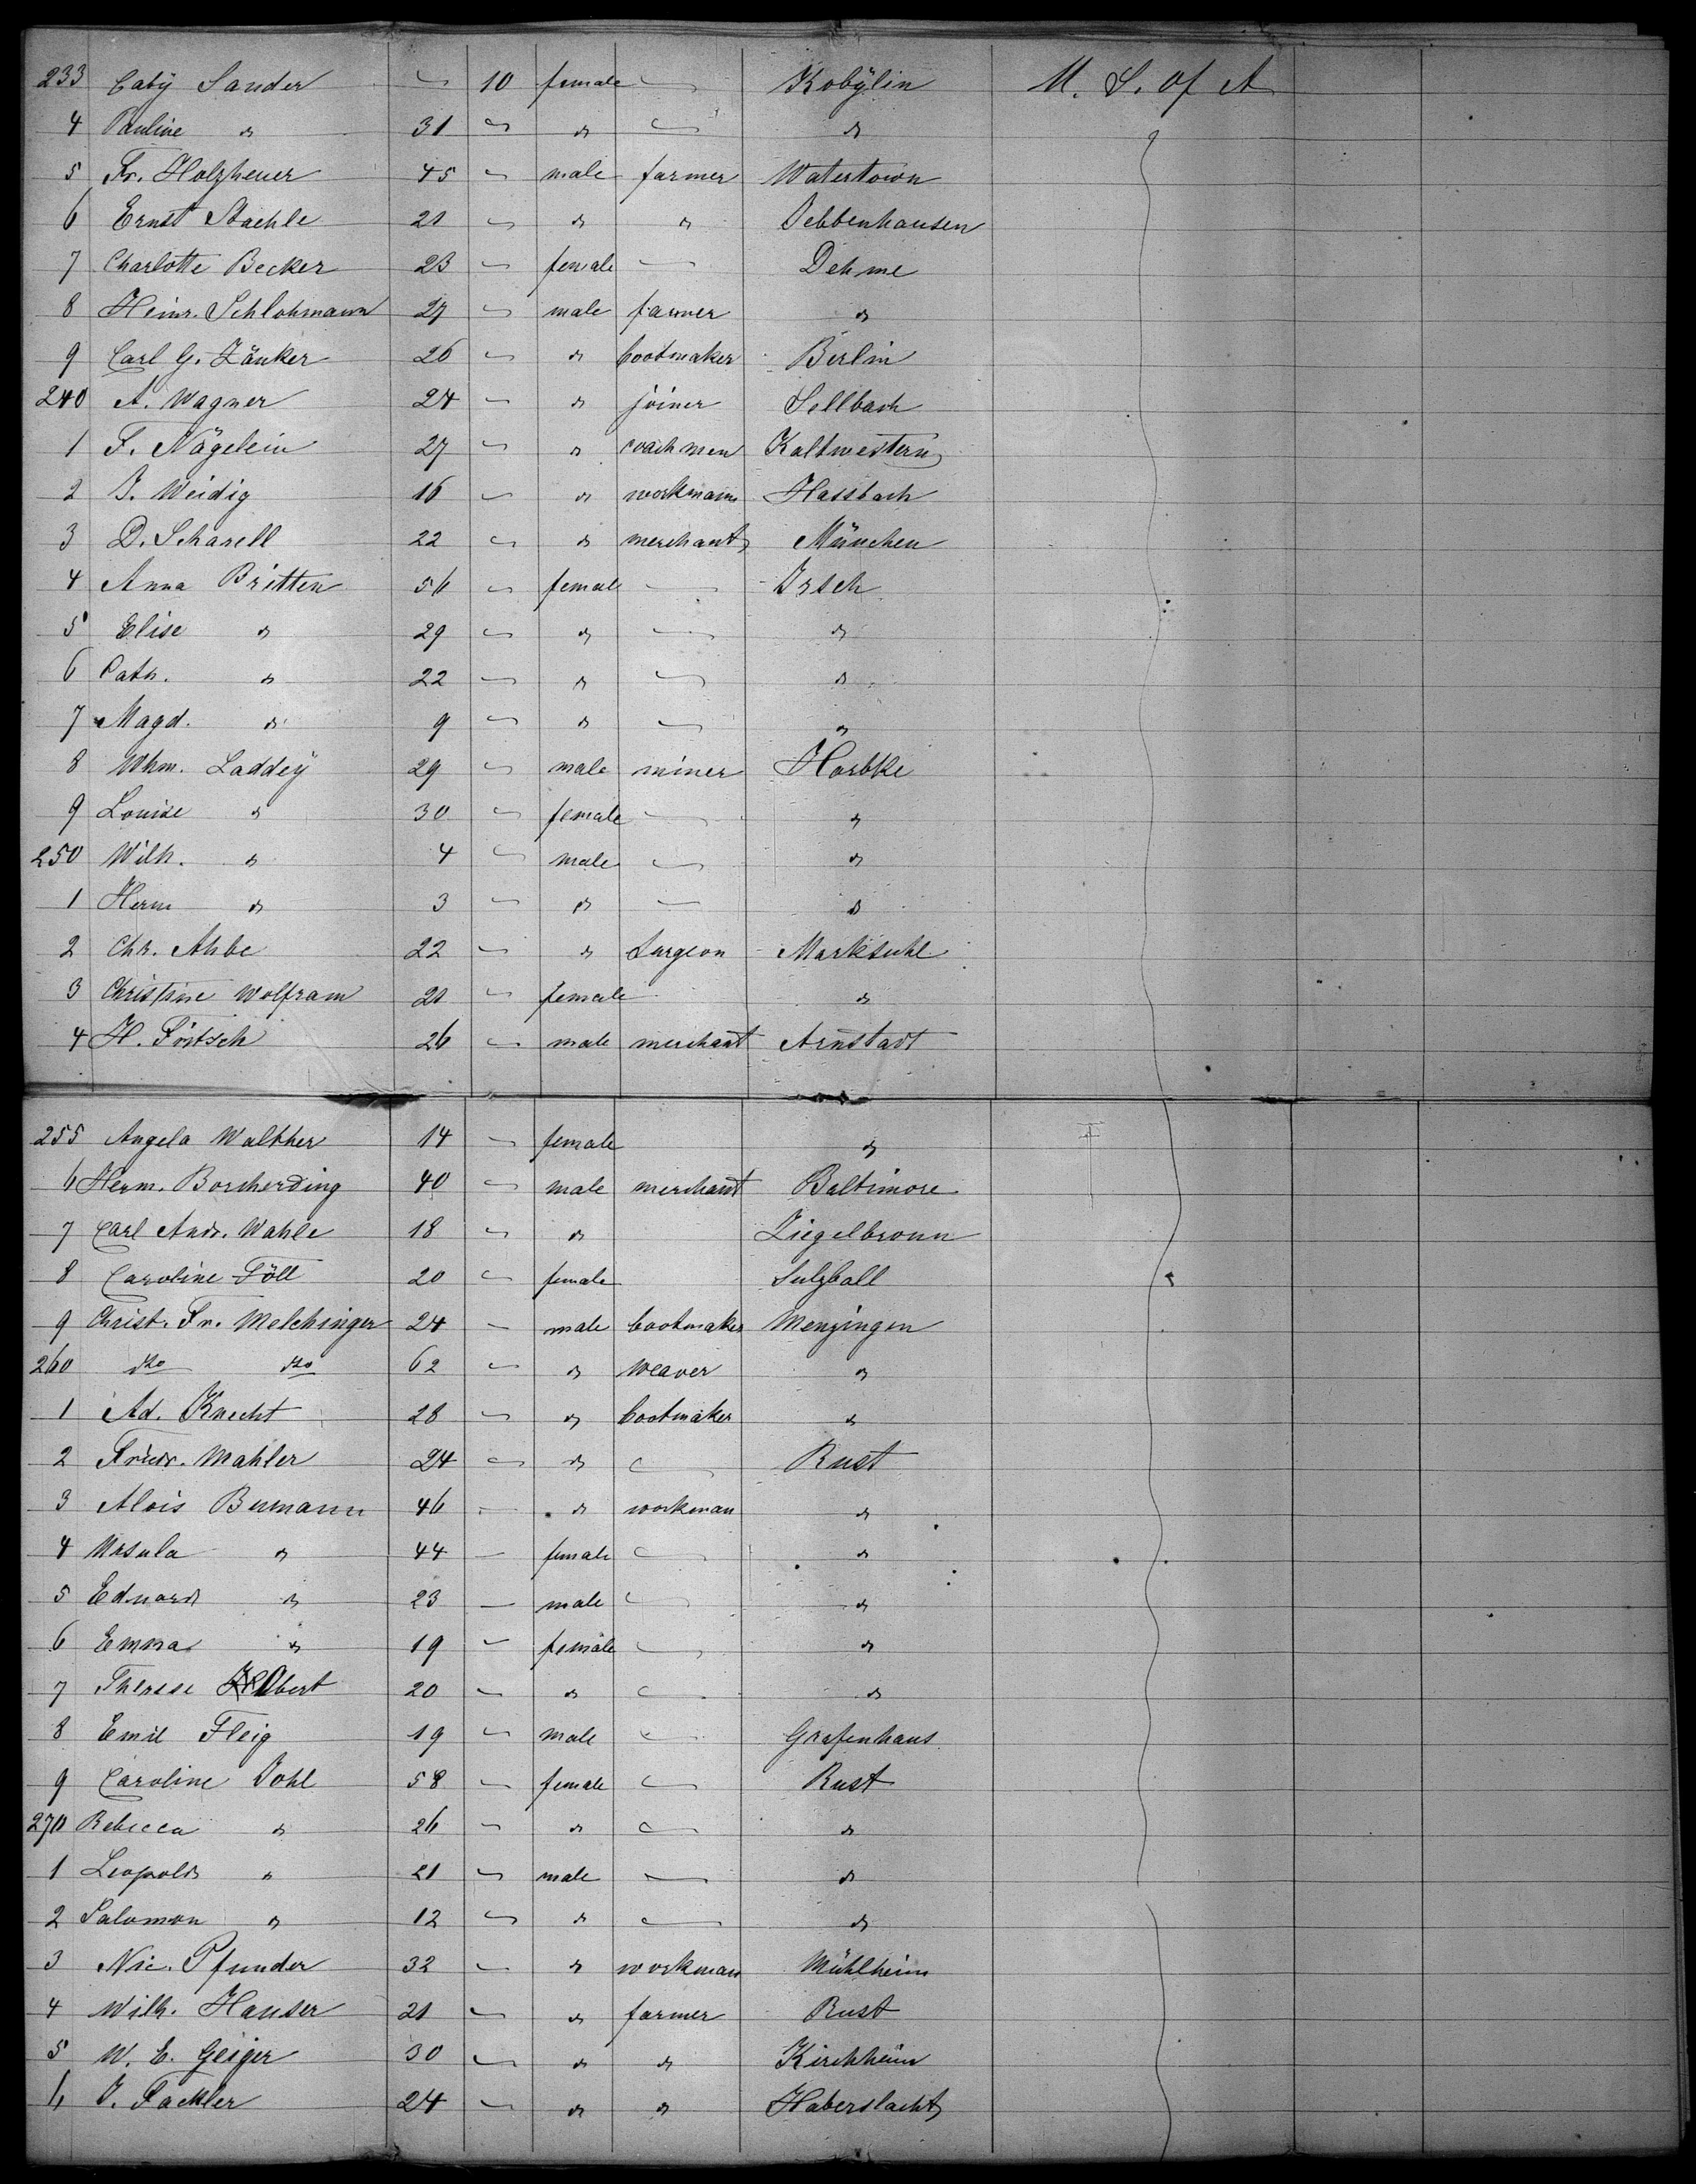 233 Caby Sander — 10 female — Kobylin U. S. of A
4 Pauline " 31 — " — "
5 Fr. Holzheuer 45 — male farmer Watertown
6 Ernst Staehle 21 — " " Jebbenhausen
7 Charlotte Becker 23 — female — Dehme
8 Heinr. Schlohmann 27 — male farmer "
9 Carl G. Zänker 26 — " bootmaker Berlin
240 A. Wagner 24 — " joiner Sellbach
1 F. Nägelein 27 — " coachmen Kaltwestern
2 J. Weidig 16 — " workmann Hassbach
3 D. Scharell 22 — " merchant München
4 Anna Britten 56 — female — Irsch
5 Elise " 29 — " — "
6 Cath. " 22 — " — "
7 Magd. " 9 — " — "
8 Whm. Laddey 29 — male miner Harbke
9 Louise " 30 — female — "
250 Wilh. " 4 — male — "
1 Herm " 3 — " — "
2 Chr. Ahbe 22 — " surgeon Marksuhl
3 Christine Wolfram 21 — female "
4 H. Förtsch 26 — male merchant Arnstadt
255 Angela Walther 14 — female "
6 Herm. Borcherding 40 — male merchant Baltimore
7 Carl Andr. Wahle 18 — " Ziegelbronn
8 Caroline Föll 20 — female Sulzball
9 Christ. Fr. Melchinger 24 — male bootmaker Menzingen
260 dto dto 62 — " weaver "
1 Ad. Knecht 28 — " bootmaker "
2 Friedr. Mahler 24 — " — Rust
3 Alois Bumann 46 — " workman "
4 Ursula " 44 — female — "
5 Eduard " 23 — male — "
6 Emma " 19 — female — "
7 Therese Obert 20 — " — "
8 Emil Fleig 19 — male — Grafenhaus
9 Caroline Dohl 58 — female — Rust
270 Rebecca " 26 — " — "
1 Leopold " 21 — male — "
2 Salomon " 12 — " — "
3 Nic. Pfunder 32 — " workman Mühlheim
4 Wilh. Hauser 21 — " farmer Rust
5 W. E. Geiger 30 — " " Kirchheim
6 J. Fackler 24 — " " Haberslacht